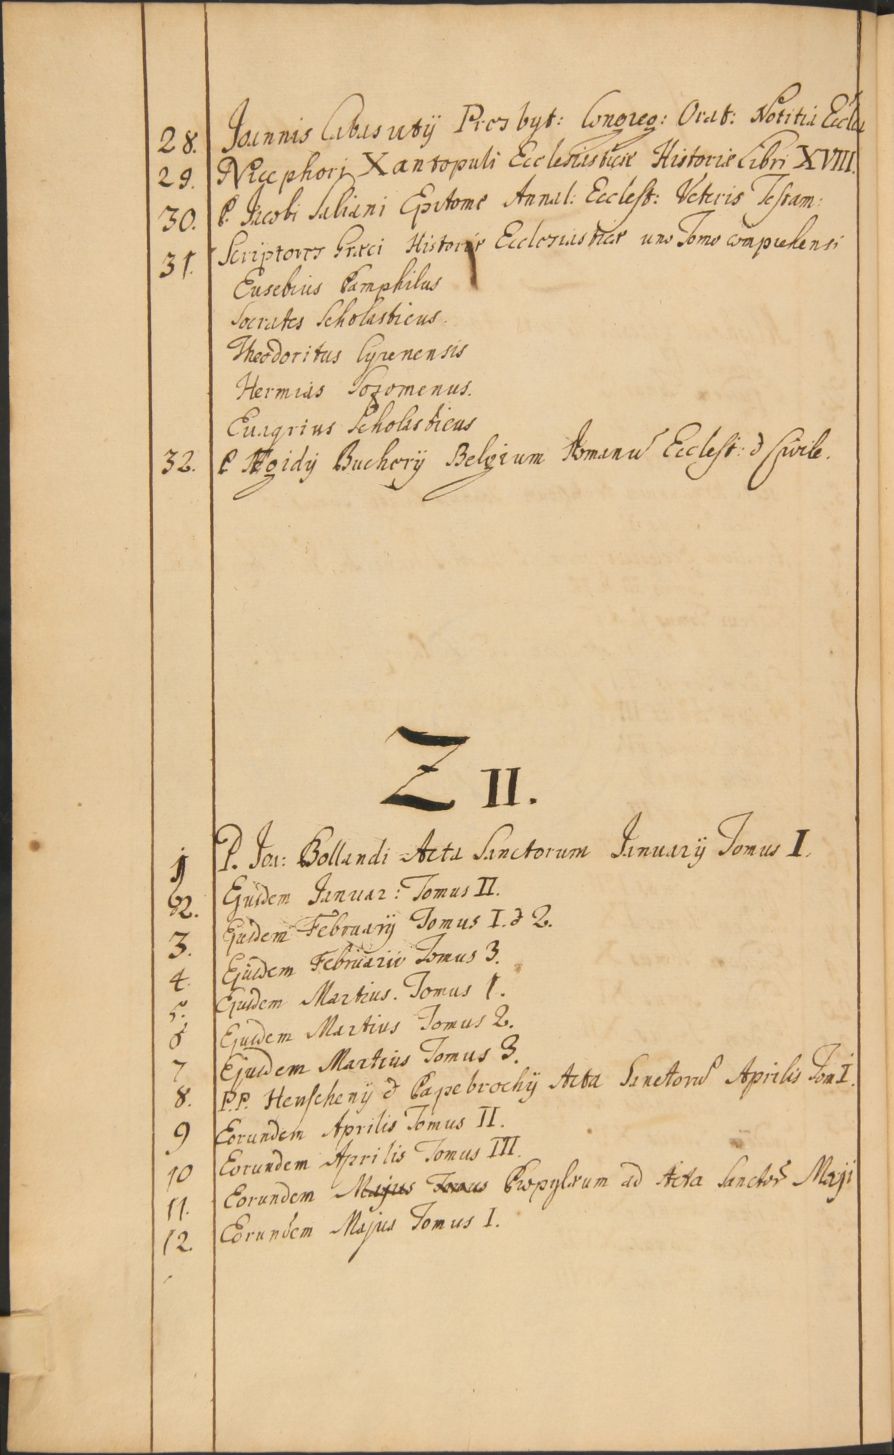 28. Joannis Cabasutÿ Presbyt: Congreg: Orat: Notitia Eccles
29. Nicephori Xantopuli Ecclesiasticæ Historiæ Libri XVIII.
30. P. Jacobi Saliani Epitome Annal: Ecclest: Veteris Testam:
31. Scriptores Græci Historiæ Ecclesiasticæ uno Tomo comprehensi
Eusebius Pamphilus
Socrates Scholasticus.
Theodoritus Cyrenensis
Hermias Sozomenus.
Euagrius Scholasticus
32. P. Ægidÿ Bucherÿ Belgium Romanū Ecclest: & Civile.
Z II.
1 P. Joa: Bollandi Acta Sanctorum Januarÿ Tomus I.
2. Ejusdem Januar: Tomus II.
3. Ejusdem Februarÿ Tomus I. & 2.
4. Ejusdem Februarii Tomus 3.
5. Ejusdem Martius. Tomus 1.
6 Ejusdem Martius Tomus 2.
7 Ejusdem Martius Tomus 3.
8. P.P. Henschenÿ & Papebrochÿ Acta Sanctorū Aprilis Tom I.
9 Eorundem Aprilis Tomus II.
10 Eorundem Aprilis Tomus III.
11. Eorundem Majus Tomus Propylæum ad Acta Sanctor Maji
12. Eorundem Majus Tomus I.